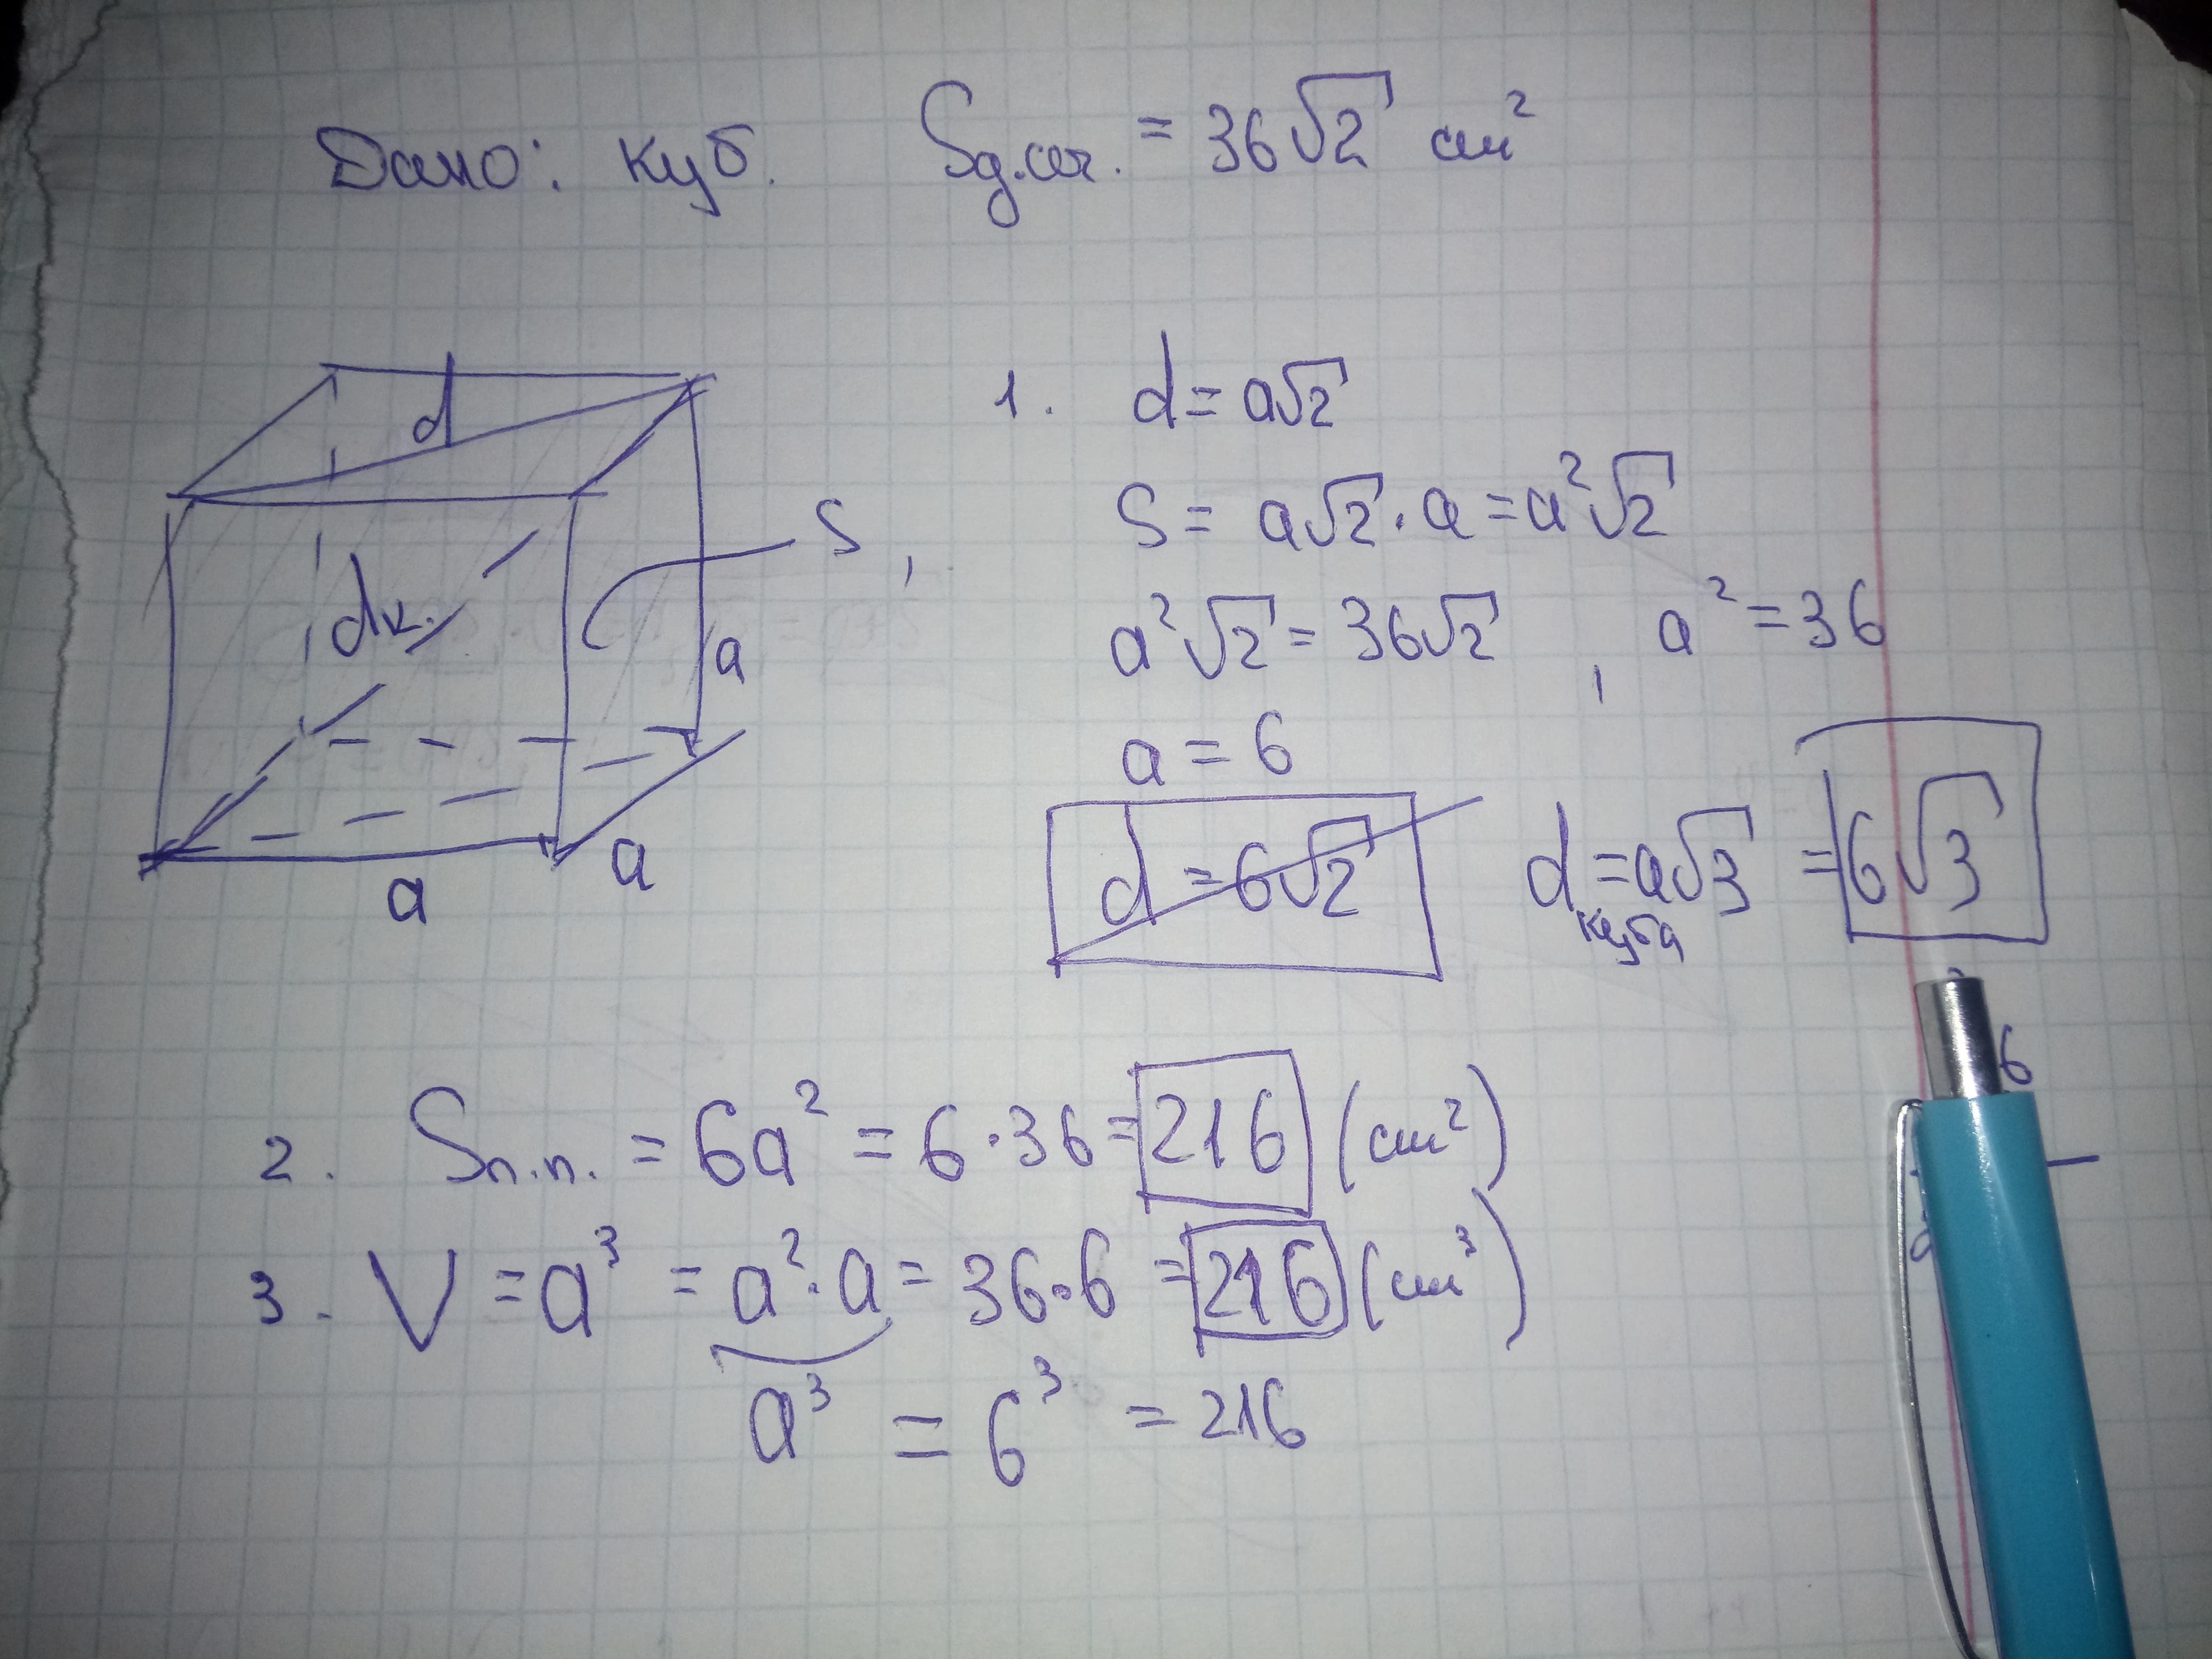 Дано: куб. Sд.сеч. = 36√2 см²
d
dк.
S
a
a
a
1. d = a√2
S = a√2 · a = a²√2
a²√2 = 36√2 , a² = 36
a = 6
d = 6√2 d куба = a√3 = 6√3
6
2. Sп.п. = 6a² = 6 · 36 = 216 (см²)
3. V = a³ = a² · a = 36 · 6 = 216 (см³)
a³ = 6³ = 216